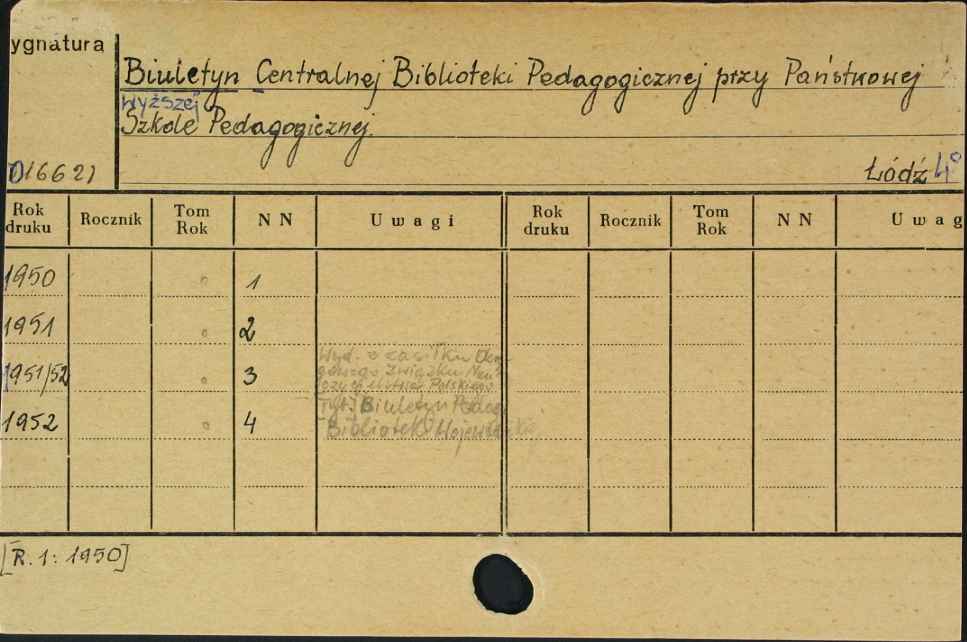 ygnatura
Biuletyn Centralnej Biblioteki Pedagogicznej przy Państwowej
Wyższej
Szkole Pedagogicznej.
016621
Łódź 4°
Rok druku Rocznik Tom Rok N N U w a g i Rok druku Rocznik Tom Rok N N U w a g
1950 1
1951 2
Wyd. z zasiłku
Związku
1951/52 3
Polskiego
1952 4
Tyt.: Biuletyn
Biblioteki
[R. 1: 1950]